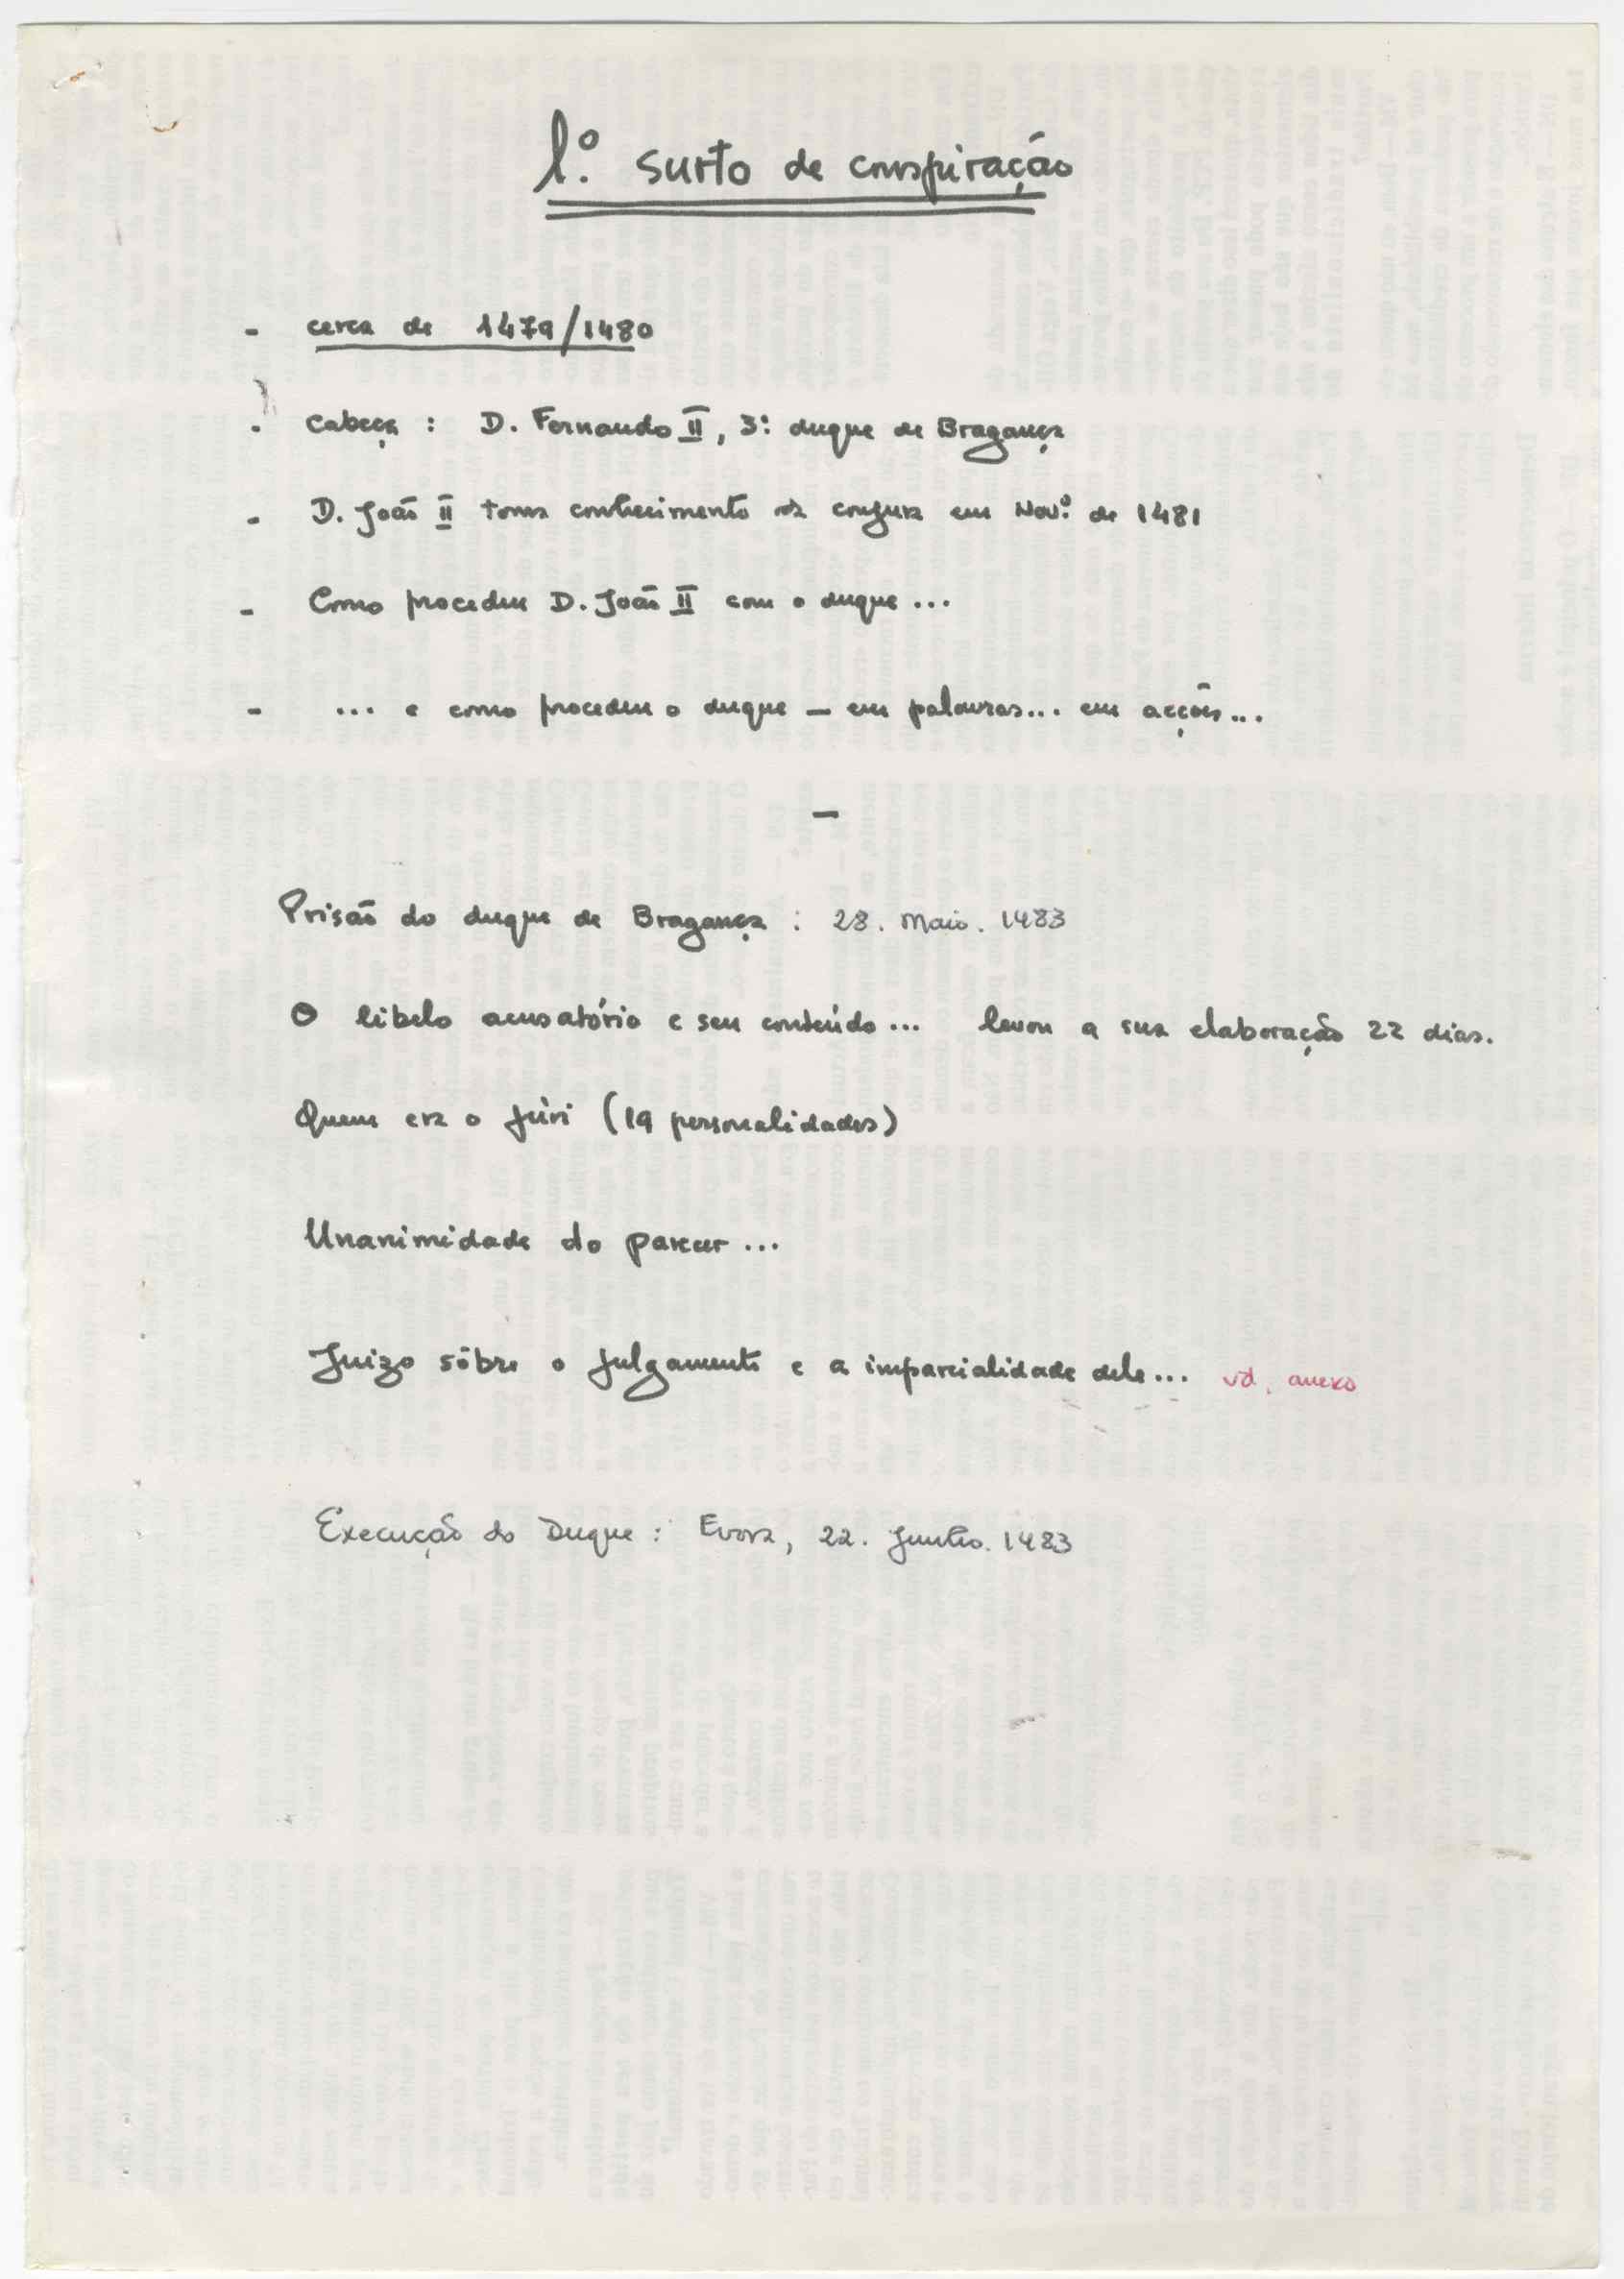 1.º surto de conspiração
- cerca de 1479/1480
- cabeça : D. Fernando II, 3.º duque de Bragança
- D. João II toma conhecimento da conjura em Nov.º de 1481
- Como procedeu D. João II com o duque ...
- ... e como procedeu o duque — em palavras... em acções...
—
Prisão do duque de Bragança : 28. Maio. 1483
O libelo acusatório e seu conteúdo ... levou a sua elaboração 22 dias.
Quem era o júri (19 personalidades)
Unanimidade do parecer ...
Juizo sôbre o julgamento e a imparcialidade dele ... vd. anexo
Execução do Duque : Evora, 22. Junho. 1483